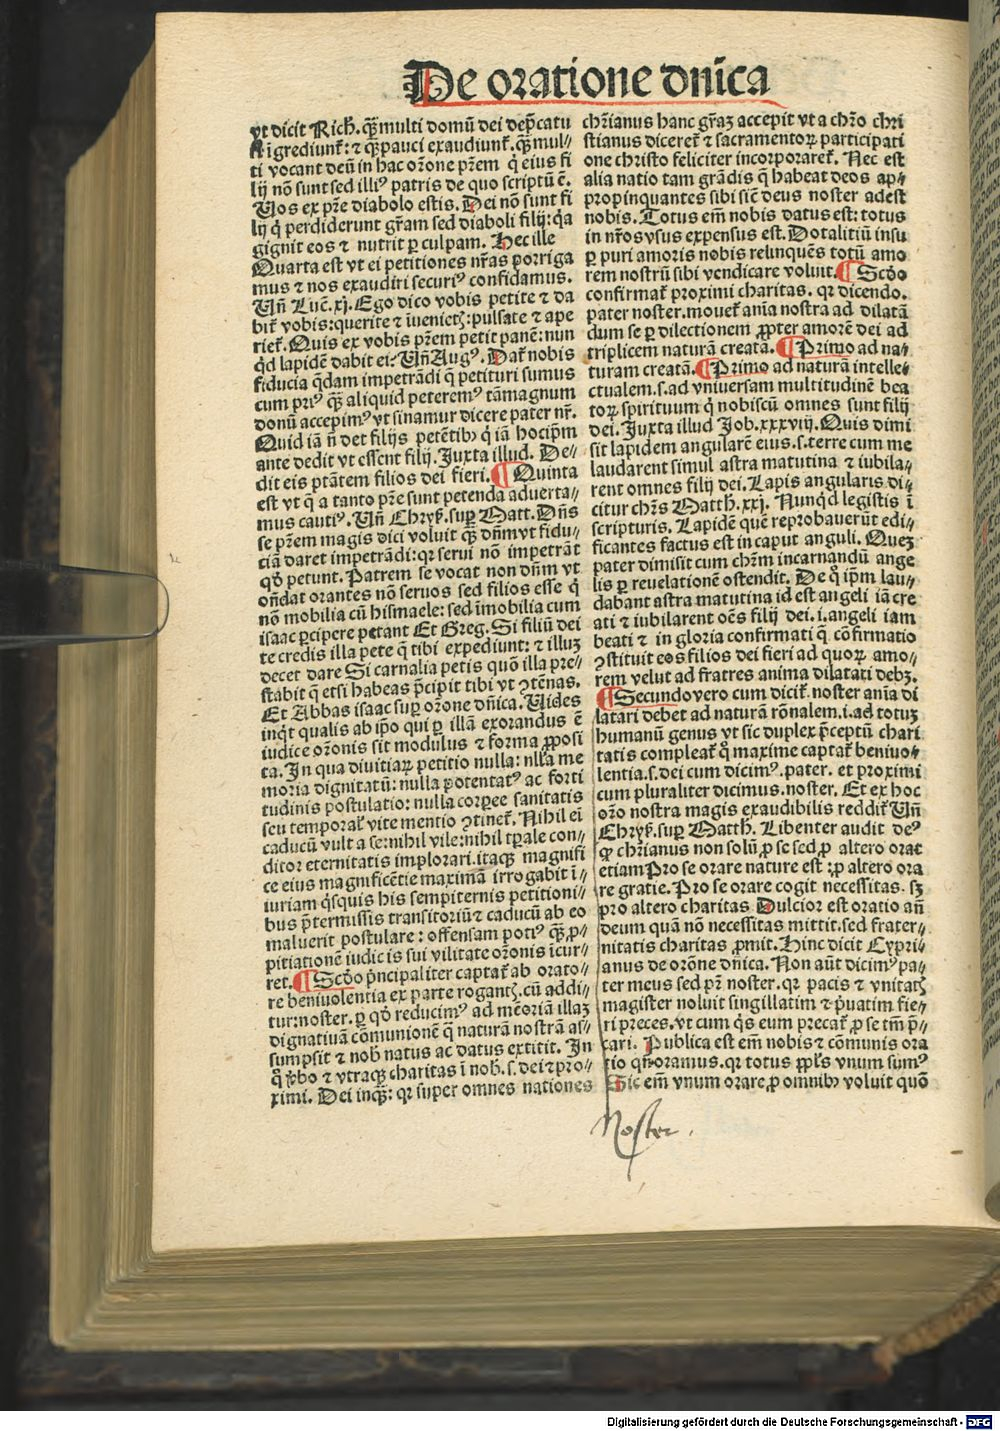 De oratione dn̄ica
vt dicit Rich. qȝ multi domū dei dep̄catu
ri ingrediunt᷑: ⁊ qȝ pauci exaudiunt᷑. qȝ mul⸗
ti vocant deū in hac or̄one pr̄em q̇ eius fi
lij nō sunt sed illiꝰ patris de quo scriptū ē.
Uos ex pr̄e diabolo estis. Dei nō sunt fi
lij q̇ perdiderunt gr̄am sed diaboli filij: q̇a
gignit eos ⁊ nutrit ꝑ culpam. Hec ille
Quarta est vt ei petitiones nr̄as porriga
mus ⁊ nos exaudiri securiꝰ confidamus.
Un̄ Luc̄. xj. Ego dico vobis petite ⁊ da
bit᷑ vobis: querite ⁊ īuenietꝭ: pulsate ⁊ ape
riet᷑. Quis ex vobis pr̄em petit panē: nun
q̇d lapidē dabit ei. Un̄ Augꝰ. Dat᷑ nobis
fiducia q̇dam impetrādi q̄ petituri sumus
cum priꝰ qȝ̄ aliquid peteremꝰ tāmagnum
donū accepimꝰ vt sinamur dicere pater nr̄.
Quid iā n̄ det filijs petētibꝰ q̇ iā hocip̄m
ante dedit vt essent filij. Juxta illud. De⸗
dit eis ptātem filios dei fieri. ¶ Quinta
est vt q̄ a tanto pr̄e sunt petenda aduerta⸗
mus cautiꝰ. Un̄ Chryſ. suꝑ Matt. Dn̄s
se pr̄em magis dici voluit qȝ̄ dn̄m vt fidu⸗
ciā daret impetrādi: qꝛ serui nō impetrāt
qḋ petunt. Patrem se vocat non dn̄m vt
on̄dat orantes nō seruos sed filios esse q̇
nō mobilia cū hismaele: sed īmobilia cum
isaac ꝑcipere petant Et Greg. Si filiū dei
te credis illa pete q̄ tibi expediunt: ⁊ illuȝ
decet dare Si carnalia petis quō illa pre⸗
stabit q̄ etsi habeas p̄cipit tibi vt ꝯtēnas.
Et Abbas isaac suꝑ or̄one dn̄ica. Uides
inq̇t qualis ab ip̄o qui ꝑ illā exorandus ē
iudice or̄onis sit modulus ⁊ forma ꝓposi
ta. In qua diuitiaꝝ petitio nulla: nlla me
moria dignitatū: nulla potentatꝰ ac forti
tudinis postulatio: nulla corpee sanitatis
seu temporal᷑ vite mentio ꝯtinet᷑. Nihil ei
caducū vult a se: nihil vile: nihil tꝑale con⸗
ditor eternitatis implorari. itaqȝ magnifi
ce eius magnificētie maximā irrogabit ī⸗
iuriam q̇squis his sempiternis petitioni⸗
bus p̄termissis transitoriū ⁊ caducū ab eo
maluerit postulare: offensam potiꝰ qȝ̄ ꝓ⸗
pitiationē iudic is sui vilitate or̄onis īcur⸗
ret. ¶ Scḋo ṗncipaliter captat᷑ ab orato⸗
re beniuolentia ex parte rogantꝭ. cū addi⸗
tur: noster. ꝑ qḋ reducimꝰ ad mēoriā illaȝ
dignatiuā cōmunionē q̄ naturā nostrā as⸗
sumpsit ⁊ nob̄ natus ac datus extitit. In
q̊ v̓bo ⁊ vtraqȝ charitas ī nob̄. s. dei ⁊ pro⸗
ximi. Dei inqȝ: qꝛ super omnes nationes
chr̄ianus hanc gr̄aȝ accepit vt a chr̄o chri
stianus diceret᷑ ⁊ sacramentoꝝ participati
one christo feliciter incorporaret᷑. Nec est
alia natio tam grādis q̄ habeat deos ap⸗
propinquantes sibi sic̄ deus noster adest
nobis. Totus em̄ nobis datus est: totus
in nr̄os vsus expensus est. Dotalitiū insu
ꝑ puri amoris nobis relinquēs totū amo
rem nostrū sibi vendicare voluit. ¶ Scḋo
confirmat᷑ proximi charitas. qꝛ dicendo.
pater noster. mouet᷑ anīa nostra ad dilatā
dum se ꝑ dilectionem ꝓpter amorē dei ad
triplicem naturā creata. ¶ Primo ad na⸗
turam creatā. ¶ Primo ad naturā intelle⸗
ctualem. s. ad vniuersam multitudinē bea
toꝝ spirituum q̇ nobiscū omnes sunt filij
dei. Juxta illud Job. xxxviij. Quis dimi
sit lapidem angularē eius. s. terre cum me
laudarent simul astra matutina ⁊ iubila⸗
rent omnes filij dei. Lapis angularis di⸗
citur chr̄s Matth. xxj. Nunq̇d legistis ī
scripturis. Lapidē quē reprobauerūt edi⸗
ficantes factus est in caput anguli. Queȝ
pater dimisit cum chr̄m incarnandū ange
lis ꝑ reuelationē ostendit. De q̊ ip̄m lau⸗
dabant astra matutina id est angeli iā cre
ati ⁊ iubilarent oēs filij dei. i. angeli iam
beati ⁊ in gloria confirmati q̄ cōfirmatio
ꝯstituit eos filios dei fieri ad quoꝝ amo⸗
rem velut ad fratres anima dilatari debȝ.
¶ Secundo vero cum dicit᷑. noster anīa di
latari debet ad naturā rōnalem. i. ad totuȝ
humanū genus vt sic duplex p̄ceptū chari
tatis compleat᷑ q̊ maxime captat᷑ beniuo⸗
lentia. s. dei cum dicimꝰ. pater. et proximi
cum pluraliter dicimus. noster. Et ex hoc
or̄o nostra magis exaudibilis reddit᷑ Un̄
Chryſ. suꝑ Matth. Libenter audit deꝰ
qn̄ chr̄ianus non solū ꝓ se sed ꝓ altero orat
etiam Pro se orare nature est: ꝓ altero ora
re gratie. Pro se orare cogit necessitas. sȝ
pro altero charitas Dulcior est oratio an̄
deum quā nō necessitas mittit. sed frater⸗
nitatis charitas ꝓmit. Hinc dicit Cypri⸗
anus de orōne dn̄ica. Non aūt dicimꝰ pa⸗
ter meus sed pr̄ noster. qꝛ pacis ⁊ vnitatꝭ
magister noluit singillatim ⁊ ṗuatim fie⸗
ri preces. vt cum q̇s eum precat᷑ ꝓ se tm̄ p̄⸗
cari. Publica est em̄ nobis ⁊ cōmunis ora
tio qn̄ oramus. qꝛ totus ppl̄s vnum sumꝰ
Sic em̄ vnum orare ꝓ omnibꝰ voluit quō
Noster.
Digitalisierung gefördert durch die Deutsche Forschungsgemeinschaft - DFG